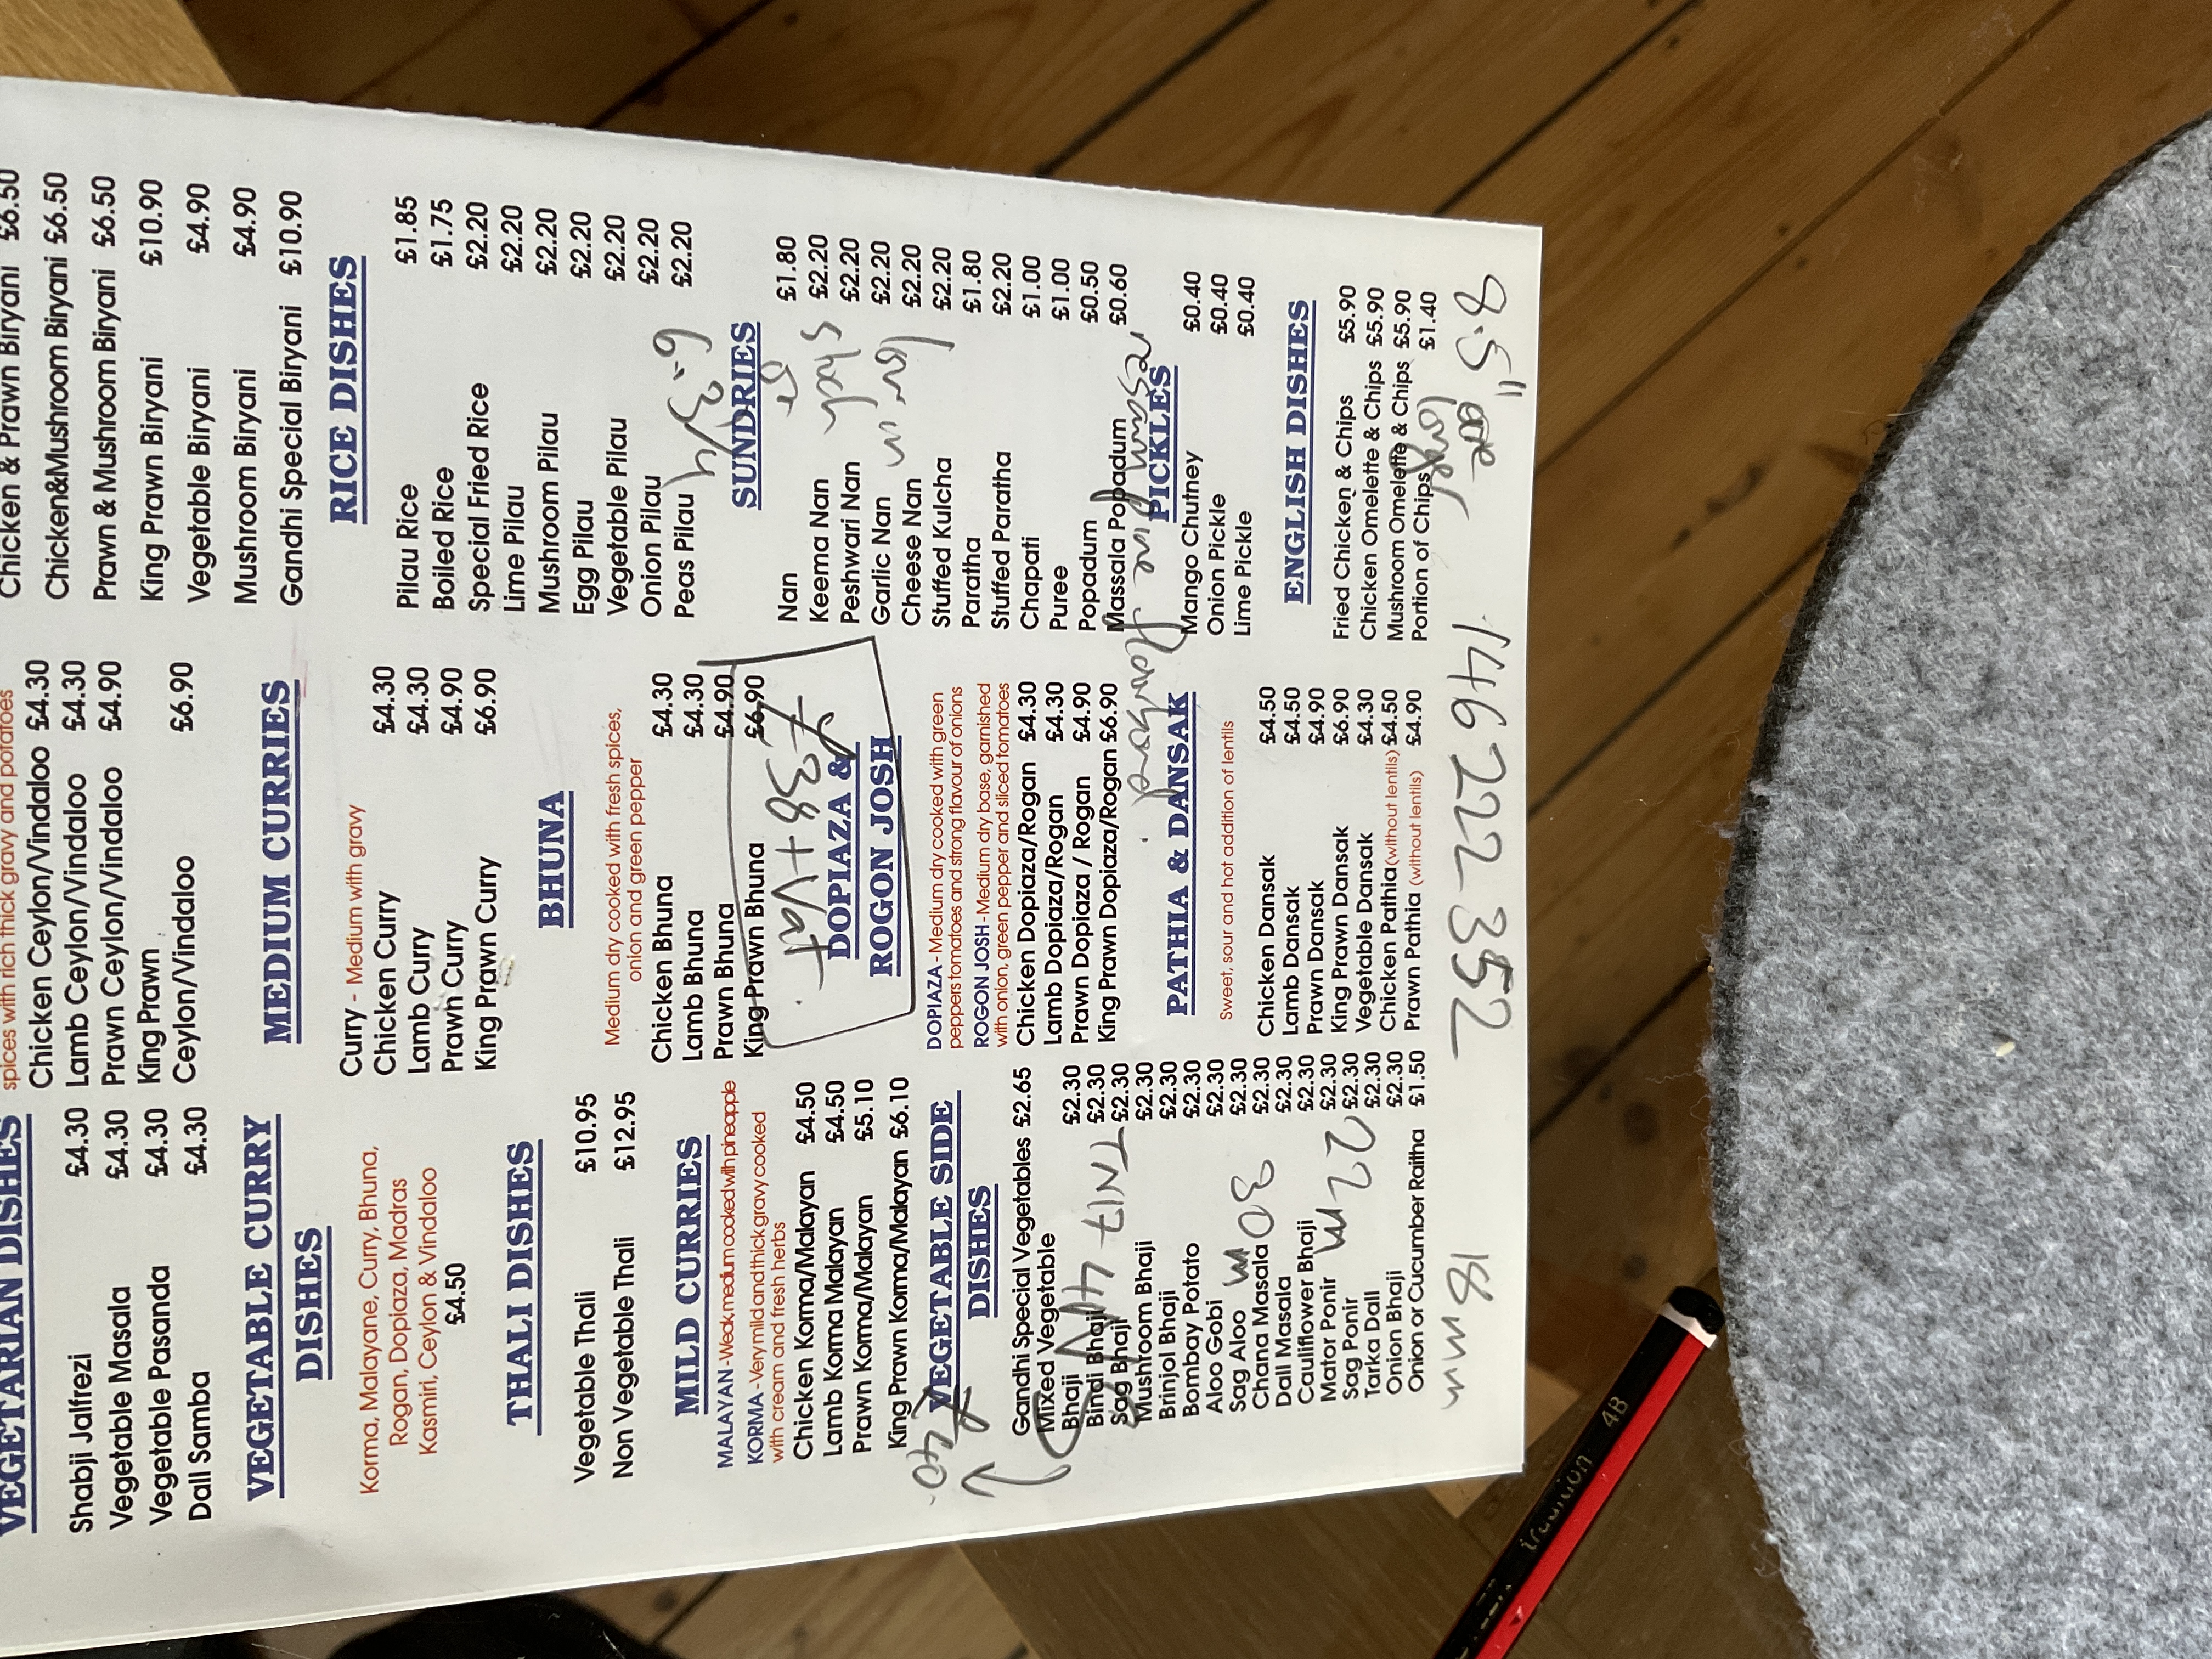 VEGETARIAN DISHES
Shabji Jalfrezi £4.30
Vegetable Masala £4.30
Vegetable Pasanda £4.30
Dall Samba £4.30
VEGETABLE CURRY
DISHES
Korma, Malayane, Curry, Bhuna,
Rogan, Dopiaza, Madras
Kasmiri, Ceylon & Vindaloo
£4.50
THALI DISHES
Vegetable Thali £10.95
Non Vegetable Thali £12.95
MILD CURRIES
MALAYAN - Weak, medium cooked with pineapple
KORMA - Very mild and thick gravy cooked
with cream and fresh herbs
Chicken Korma/Malayan £4.50
Lamb Korma Malayan £4.50
Prawn Korma/Malayan £5.10
King Prawn Korma/Malayan £6.10
£40
VEGETABLE SIDE
DISHES
Gandhi Special Vegetables £2.65
Mixed Vegetable
Bhaji £2.30
Bindi Bhaji £2.30
Sag Bhaji £2.30
TN17 4
Mushroom Bhaji £2.30
Brinjol Bhaji £2.30
Bombay Potato £2.30
Aloo Gobi £2.30
Sag Aloo £2.30
Chana Masala £2.30
Dall Masala £2.30
Cauliflower Bhaji £2.30
Mator Ponir £2.30
Sag Ponir £2.30
Tarka Dall £2.30
Onion Bhaji £2.30
Onion or Cucumber Raitha £1.50
spices with rich thick gravy and potatoes
Chicken Ceylon/Vindaloo £4.30
Lamb Ceylon/Vindaloo £4.30
Prawn Ceylon/Vindaloo £4.90
King Prawn
Ceylon/Vindaloo £6.90
MEDIUM CURRIES
Curry - Medium with gravy
Chicken Curry £4.30
Lamb Curry £4.30
Prawn Curry £4.90
King Prawn Curry £6.90
BHUNA
Medium dry cooked with fresh spices,
onion and green pepper
Chicken Bhuna £4.30
Lamb Bhuna £4.30
Prawn Bhuna £4.90
King Prawn Bhuna £6.90
£38+Vat
DOPIAZA &
ROGON JOSH
DOPIAZA - Medium dry cooked with green
peppers tomatoes and strong flavour of onions
ROGON JOSH - Medium dry base, garnished
with onion, green pepper and sliced tomatoes
Chicken Dopiaza/Rogan £4.30
Lamb Dopiazza/Rogan £4.30
Prawn Dopiaza / Rogan £4.90
King Prawn Dopiaza/Rogan £6.90
PATHIA & DANSAK
Sweet, sour and hot addition of lentils
Chicken Dansak £4.50
Lamb Dansak £4.50
Prawn Dansak £4.90
King Prawn Dansak £6.90
Vegetable Dansak £4.30
Chicken Pathia (without lentils) £4.50
Prawn Pathia (without lentils) £4.90
Chicken & Prawn Biryani £6.50
Chicken&Mushroom Biryani £6.50
Prawn & Mushroom Biryani £6.50
King Prawn Biryani £10.90
Vegetable Biryani £4.90
Mushroom Biryani £4.90
Gandhi Special Biryani £10.90
RICE DISHES
Pilau Rice £1.85
Boiled Rice £1.75
Special Fried Rice £2.20
Lime Pilau £2.20
Mushroom Pilau £2.20
Egg Pilau £2.20
Vegetable Pilau £2.20
Onion Pilau £2.20
Peas Pilau £2.20
SUNDRIES
Nan £1.80
Keema Nan £2.20
Peshwari Nan £2.20
Garlic Nan £2.20
Cheese Nan £2.20
Stuffed Kulcha £2.20
Paratha £1.80
Stuffed Paratha £2.20
Chapati £1.00
Puree £1.00
Popadum £0.50
Massala Popadum £0.60
PICKLES
Mango Chutney £0.40
Onion Pickle £0.40
Lime Pickle £0.40
ENGLISH DISHES
Fried Chicken & Chips £5.90
Chicken Omelette & Chips £5.90
Mushroom Omelette & Chips £5.90
Portion of Chips £1.40
18 mm
146 222 352
8.5"
tradition 4B